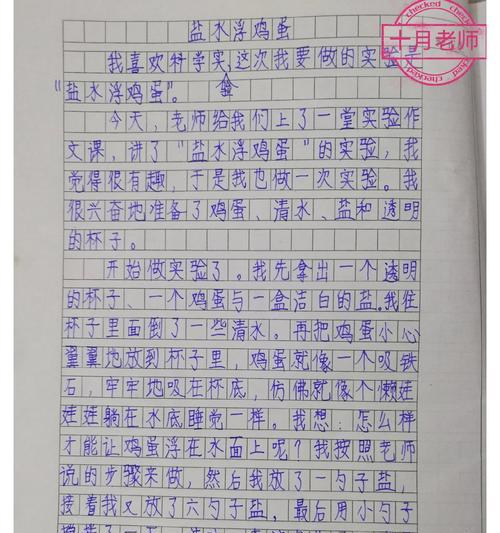 盐水浮鸡蛋
十月老师
checked
我喜欢科学实，这次我要做的实验是
“盐水浮鸡蛋”。
今天，老师给我们上了一堂实验作
文课，讲了“盐水浮鸡蛋”的实验，我
觉得很有趣，于是我也做一次实验。我
很兴奋地准备了鸡蛋、清水、盐和透明
的杯子。
开始做实验了。我先拿出一个透明
的杯子、一个鸡蛋与一盒洁白的盐。我往
杯子里面倒了一些清水。再把鸡蛋小心
翼翼地放到杯子里，鸡蛋就像一个吸铁
石，牢牢地吸在杯底，仿佛就像个懒娃
娃娃躺在水底睡觉一样。我想：怎么样
才能让鸡蛋浮在水面上呢？我按照老师
说的步骤来做，然后我放了一勺子盐，
接着我又放了六勺子盐，最后用小勺子